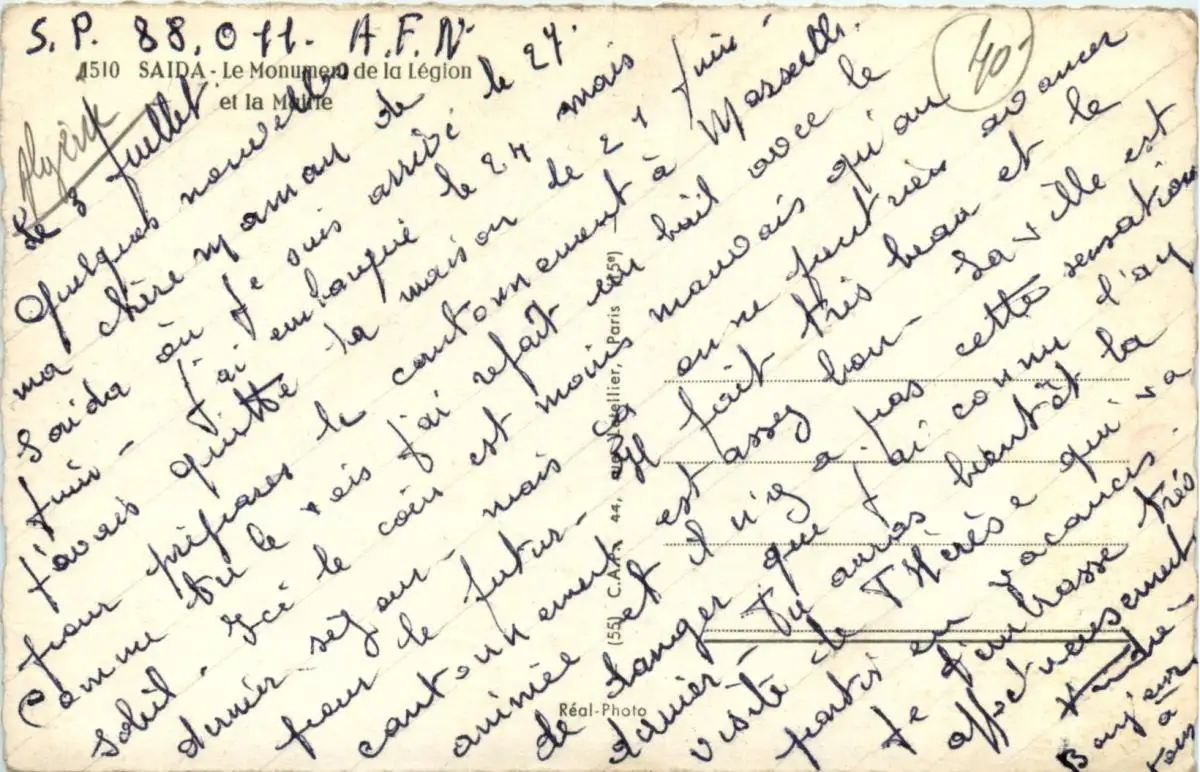 S.P. 88.011. A.F.N.
1510 SAIDA - Le Monument de la Légion
et la Mairie
Algérie
40-
Le 3 Juillet
Quelques nouvelles
ma chère maman de
Saida où je suis arrivé le 27.
Juin - J'ai embarqué le 24 mais
j'avais quitté la maison le 21 Juin
pour préparer le cantonnement à Marseille.
Comme tu le vois j'ai refait un bail avec le
soleil. Ici le coin est moins mauvais qu'au
dernier séjour - mais ça on ne peut rien avancer
pour le futur - Il fait très beau et le
cantonnement est assez bon - La ville est
animée et il n'y a pas cette sensation
de danger que j'ai connu l'an
dernier - Tu auras bientôt la
visite de Thérèse qui va
partir en vacances.
Je t'embrasse très
affectueusement
André
Bonjour
à
tous
(55) C.A.P. 44, rue Letellier, Paris (15e)
Réal-Photo